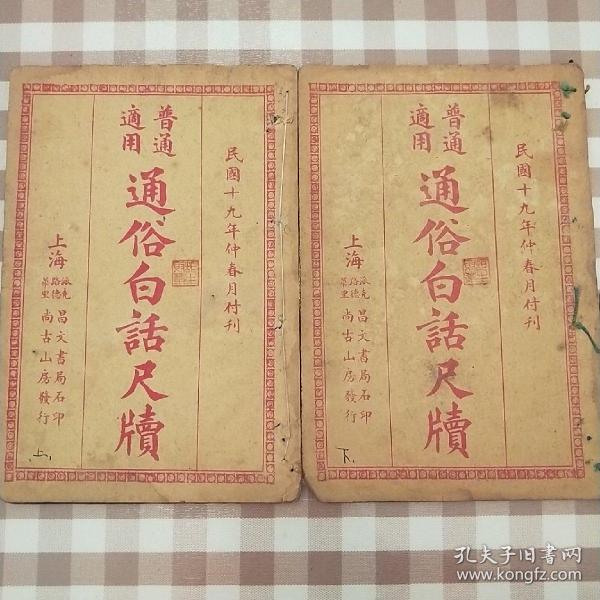 民國十九年仲春月付刊
普通
適用
通俗白話尺牘
上海
昌文書局石印
尚古山房發行
上.
民國十九年仲春月付刊
普通
適用
通俗白話尺牘
上海
昌文書局石印
尚古山房發行
下.
孔夫子旧书网
www.kongfz.com